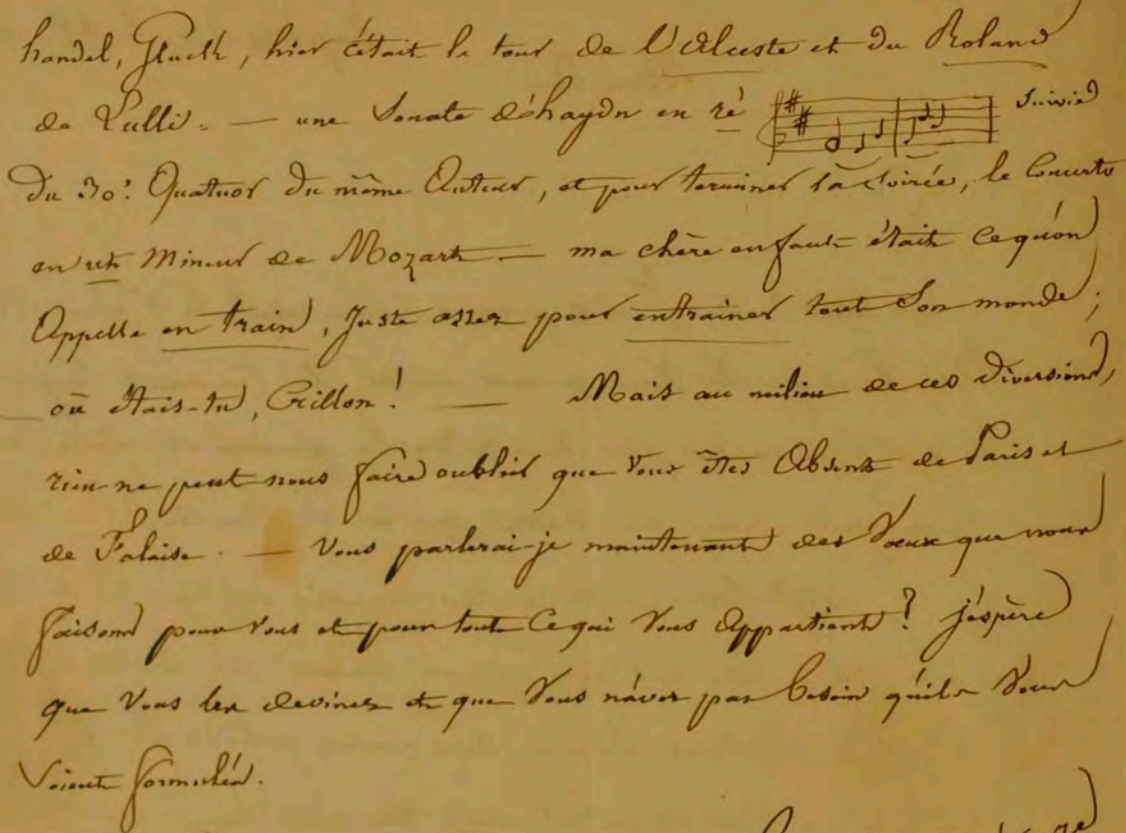 handel, Gluck, hier c'était le tour de l'Alceste et du Roland
de Lulli. — une Sonate d'haydn en ré suivie
du 30e. Quatuor du même Auteur, et pour terminer la soirée, le Concerto
en ut Mineur de Mozart — ma chère enfant était ce qu'on
Appelle en train, Juste assez pour entrainer tout son monde;
où étais-tu, Crillon! — Mais au milieu de ces diversions,
rien ne peut nous faire oublier que vous êtes Absents de Paris et
de Falaise. — Vous parlerai-je maintenant des Vœux que nous
faisons pour vous et pour toute Ce qui vous Appartient? j'éspère
que Vous les devinez et que Vous n'avez pas besoin qu'ils Vous
soient formulés.